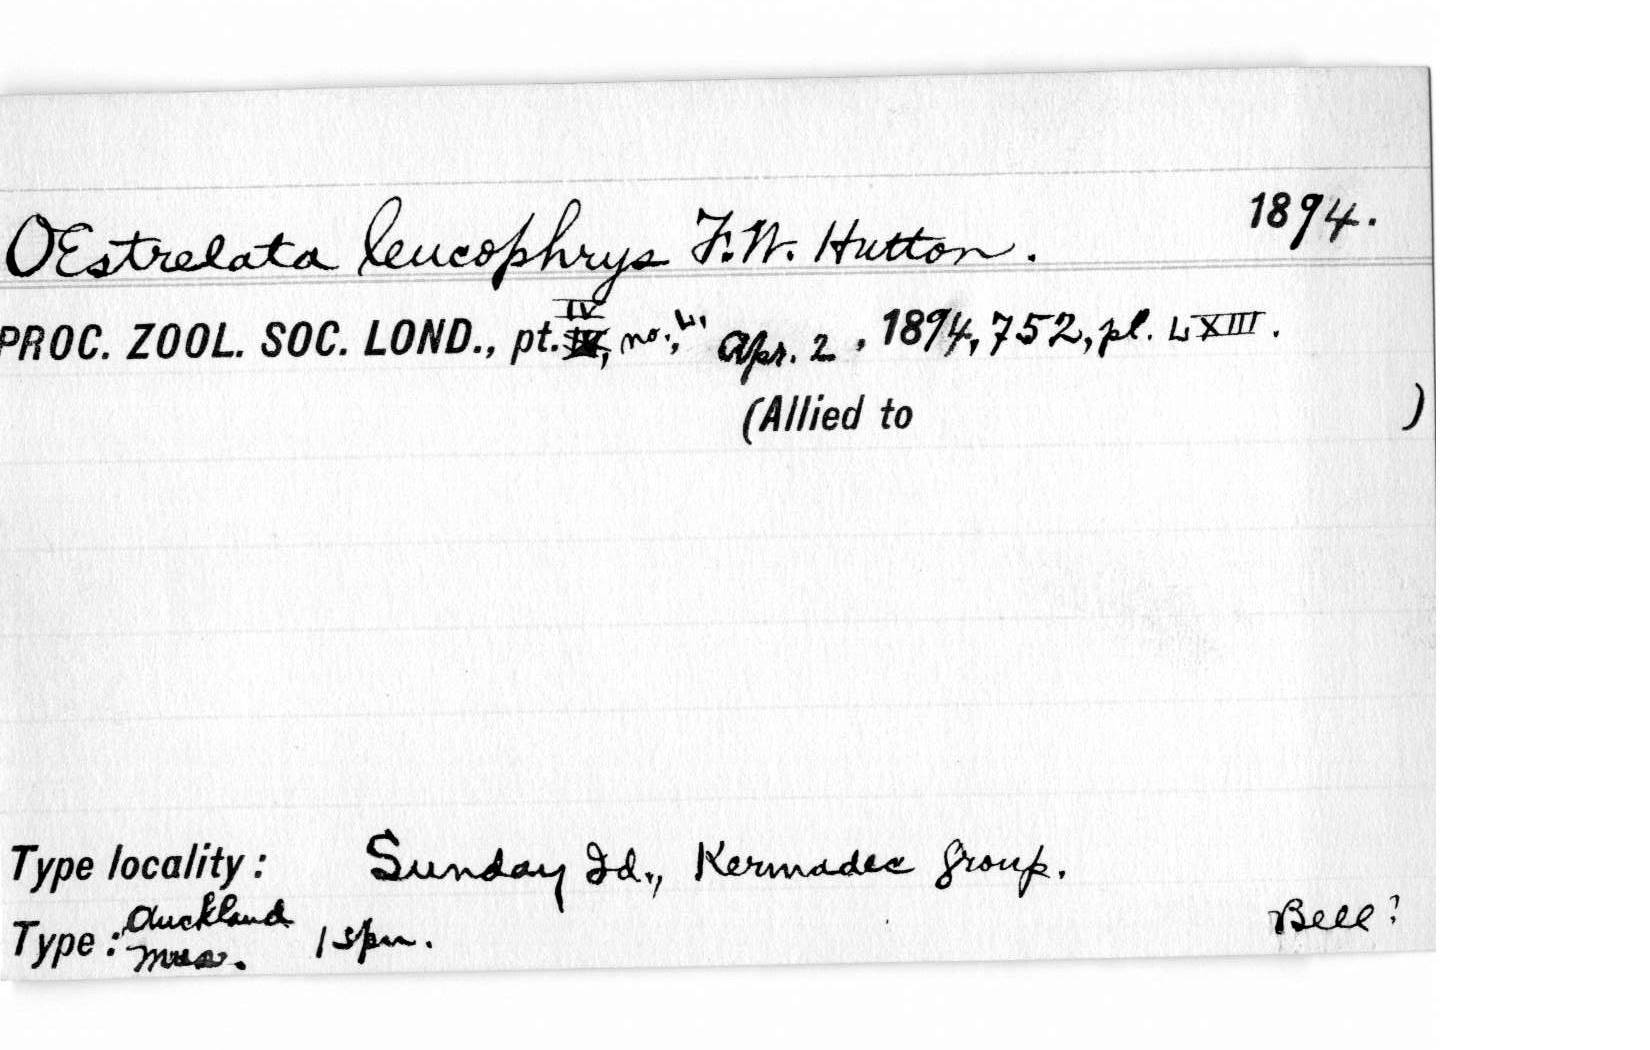 OEstrelata leucophrys F.W. Hutton. 1894.
PROC. ZOOL. SOC. LOND., pt. IV, no., L, Apr. 2, 1894, 752, pl. LXIII.
(Allied to )
Type locality: Sunday Id., Kermadec group.
Type: Auckland Mus. 1 spm. Bell?